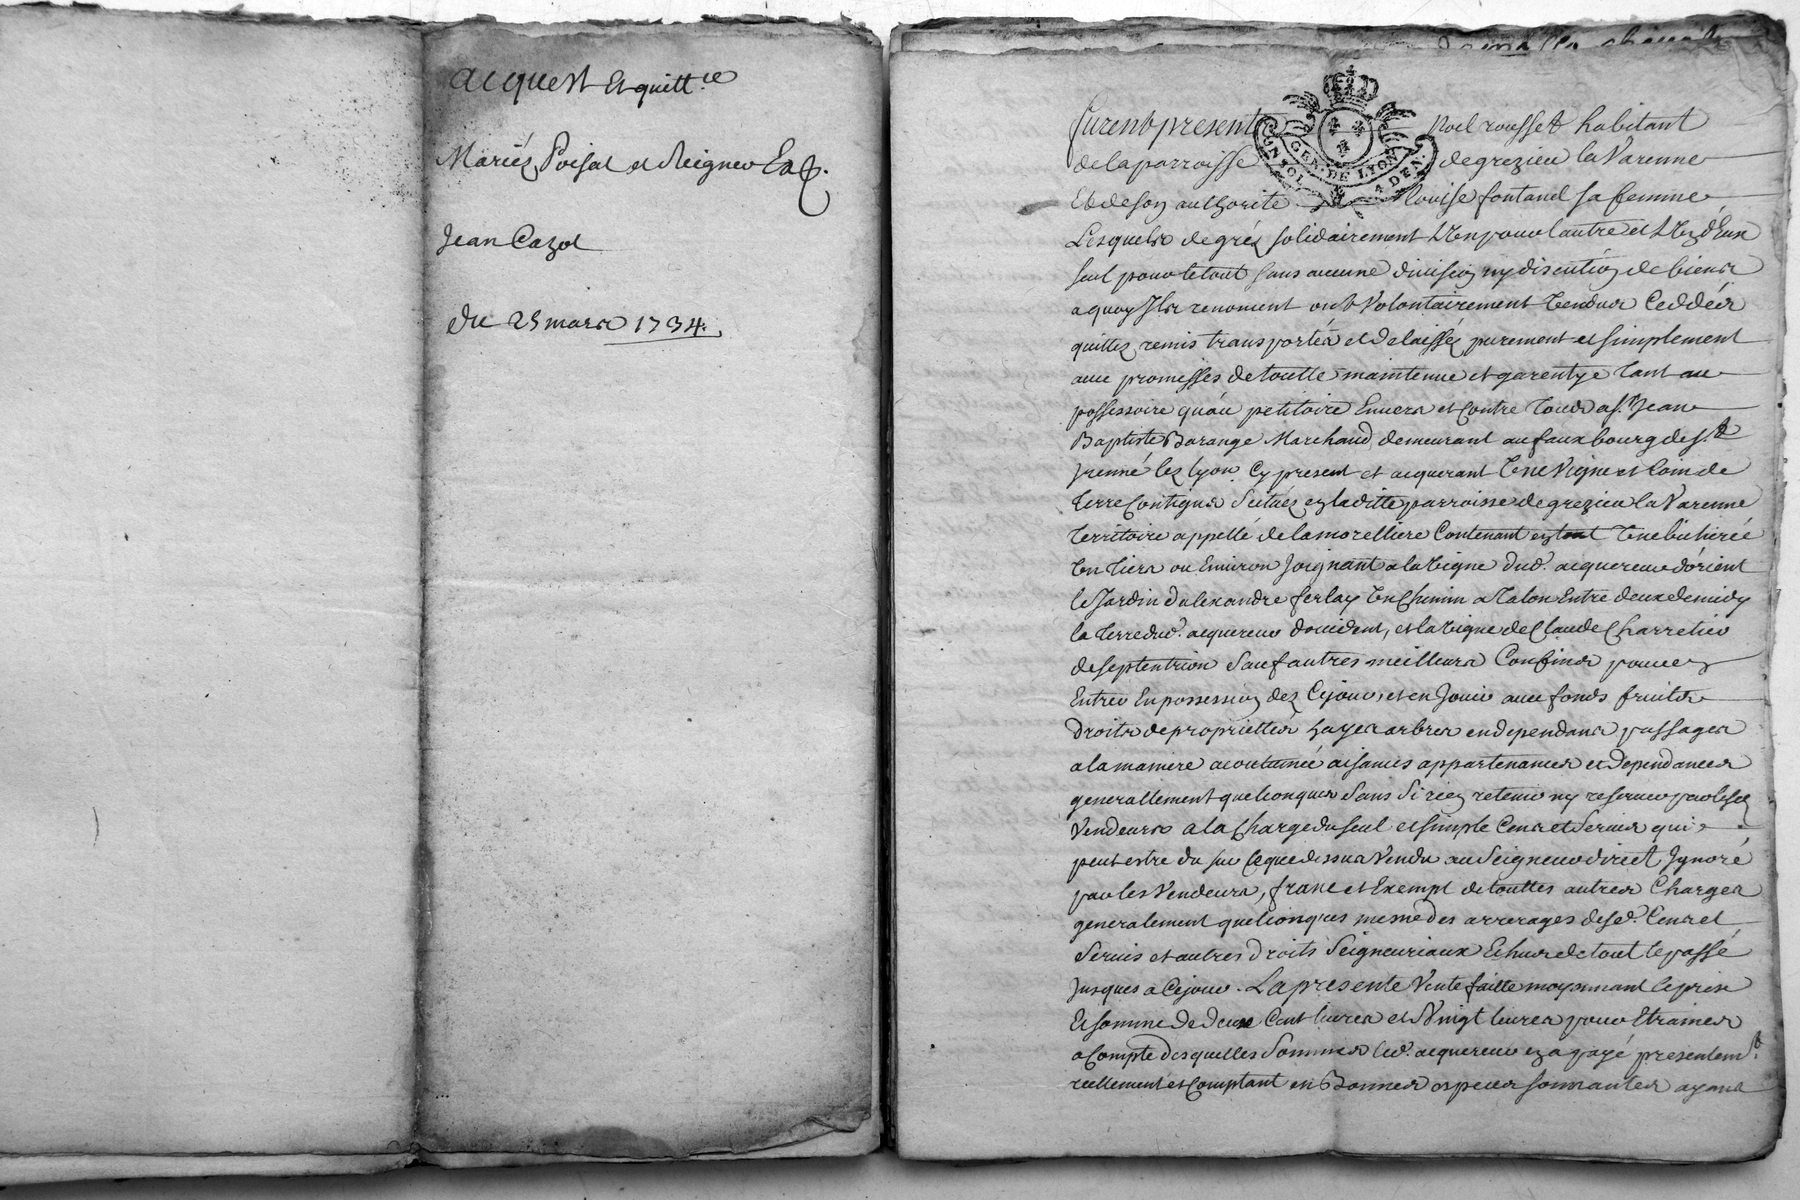 acquest Et quitt.ce
Mariéz Poisat et Seigneur
Jean Cazot
du 25 mars 1734.
furent presents Noel rousset habitant
de la parroisse de grezieu la Varenne
Et de son authorité Louise fontanel sa femme
GEN. DE LYON
Lesquels de gréz solidairement l'Un pour l'autre et l'Un d'Eux
seul pour le tout sans aucune division ny discution de biens
a quoy Ils renoncent ont Volontairement Vendus Ceddés
quittez remis transportés et delaissez purement et simplement
avec promesses de toutte maintenue et garentye tant au
possessoire qu'au petitoire Envers et Contre tous a sr. Jean
Baptiste Barange Marchand demeurant au faux bourg de st.
Irenné lez lyon Cy present et acquerant Une Vigne et Coin de
terre Contigus Scituez en la ditte parroisse de grezieu la Varenne
territoire appellé de la morelliere Contenant en tout Une bicherée
Un tiers ou Environ Joignant a la Vigne dud. acquereur d'orient
le Jardin d'alexandre ferlay Un Chemin a talon Entre deux de midy
la terre dud. acquereur d'occident, et la Vigne de Claude Charretier
de septentrion Sauf autres meilleurs Confins pour en
Entrer En possession dez Cejour, et en Jouir avec fonds fruits
Droits de proprietés hayes arbres en dependans passages
a la maniere acoutumée aisances appartenances et dependances
generallement quelconques Sans Si rien retenir ny reserver par lesd
Vendeurs a la Charge du seul et simple Cens et Servis qui
peut estre du sur Ce que dessus Vendu au Seigneur direct Ignoré
par les Vendeurs, franc et Exempt de touttes autres Charges
generalement quelconques mesme des arrerages desd. Cens et
Servis et autres Droits Seigneuriaux Echus de tout le passé
Jusques a Cejour. La presente Vente faitte moyennant le prix
Et somme de deux Cent livres et Vingt livres pour Etraines
a Compte desquelles Sommes led. acquereur en a payé presentemt.
reellement et Comptant en Bonnes especes sonnantes ayans